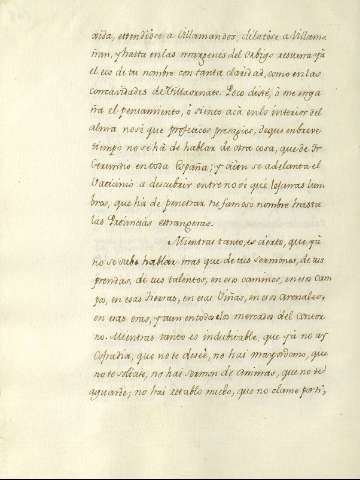 cida, estendiose a Villamandos, dilatose a Villama-
ñan, y hasta en las margenes del Orbigo resuena ya
el eco de tu nombre con tanta claridad, como en las
concavidades de Villaornate. Poco dixe, ó me enga-
ña el pensamiento, ó siento acà en lo interior del
alma no sè que profeticos presagios, de que en breve
tiempo no se hà de hablar de otra cosa, que de Fr.
Gerundio en toda España; y aùn se adelanta el
Vaticinio a descubrir entre no sè que lejanas lum-
bres, que hà de penetrar tu famoso nombre hasta
las Provincias estrangeras.
Mientras tanto, es cierto, que yà
no se sabe hablar mas que de tus sermones, de tus
prendas, de tus talentos, en esos caminos, en esos cam-
pos, en esas Heras, en esas Viñas, en esos Arenales,
en esas eras, y aun en todos los mercados del contor-
no. Mientras tanto es indubitable, que yà no ay
Cofradia, que no te desèe, no hai mayordomo, que
no te solicite, no hai sermon de animas, que no te
aguarde; no hai retablo nuebo, que no clame por ti,